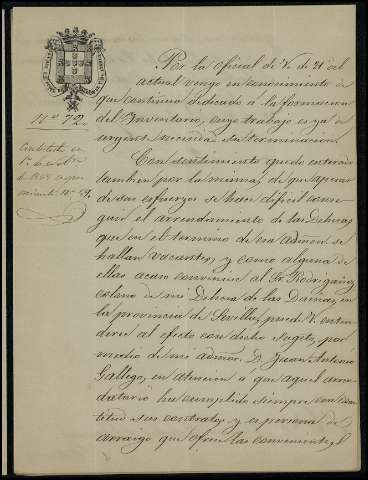 Nº 72.
Contestada en
Por la oficial de V. de 21 del
actual vengo en conocimiento de
que continua dedicado á la formacion
del Inventario, cuyo trabajo es ya de
urgente necesidad su terminacion.
Con sentimiento quedo enterado
tambien por la misma, de que apesar
de sus esfuerzos se hace dificil conse-
guir el arrendamiento de las Dehesas
que en el termino de esa Admon se
hallan vacantes, y como alguna de
ellas acaso convenga al Sr. Rodrigañez
colono de mi Dehesa de las Damas, en
la provincia de Sevilla, puede V. enten-
derse al efecto con dicho sugeto, por
medio de mi Admor. D. Juan Antonio
Gallego, en atencion á que aquel arren-
datario ha cumplido siempre con exac-
titud sus contratos y es persona de
arraigo que ofrece las convenientes